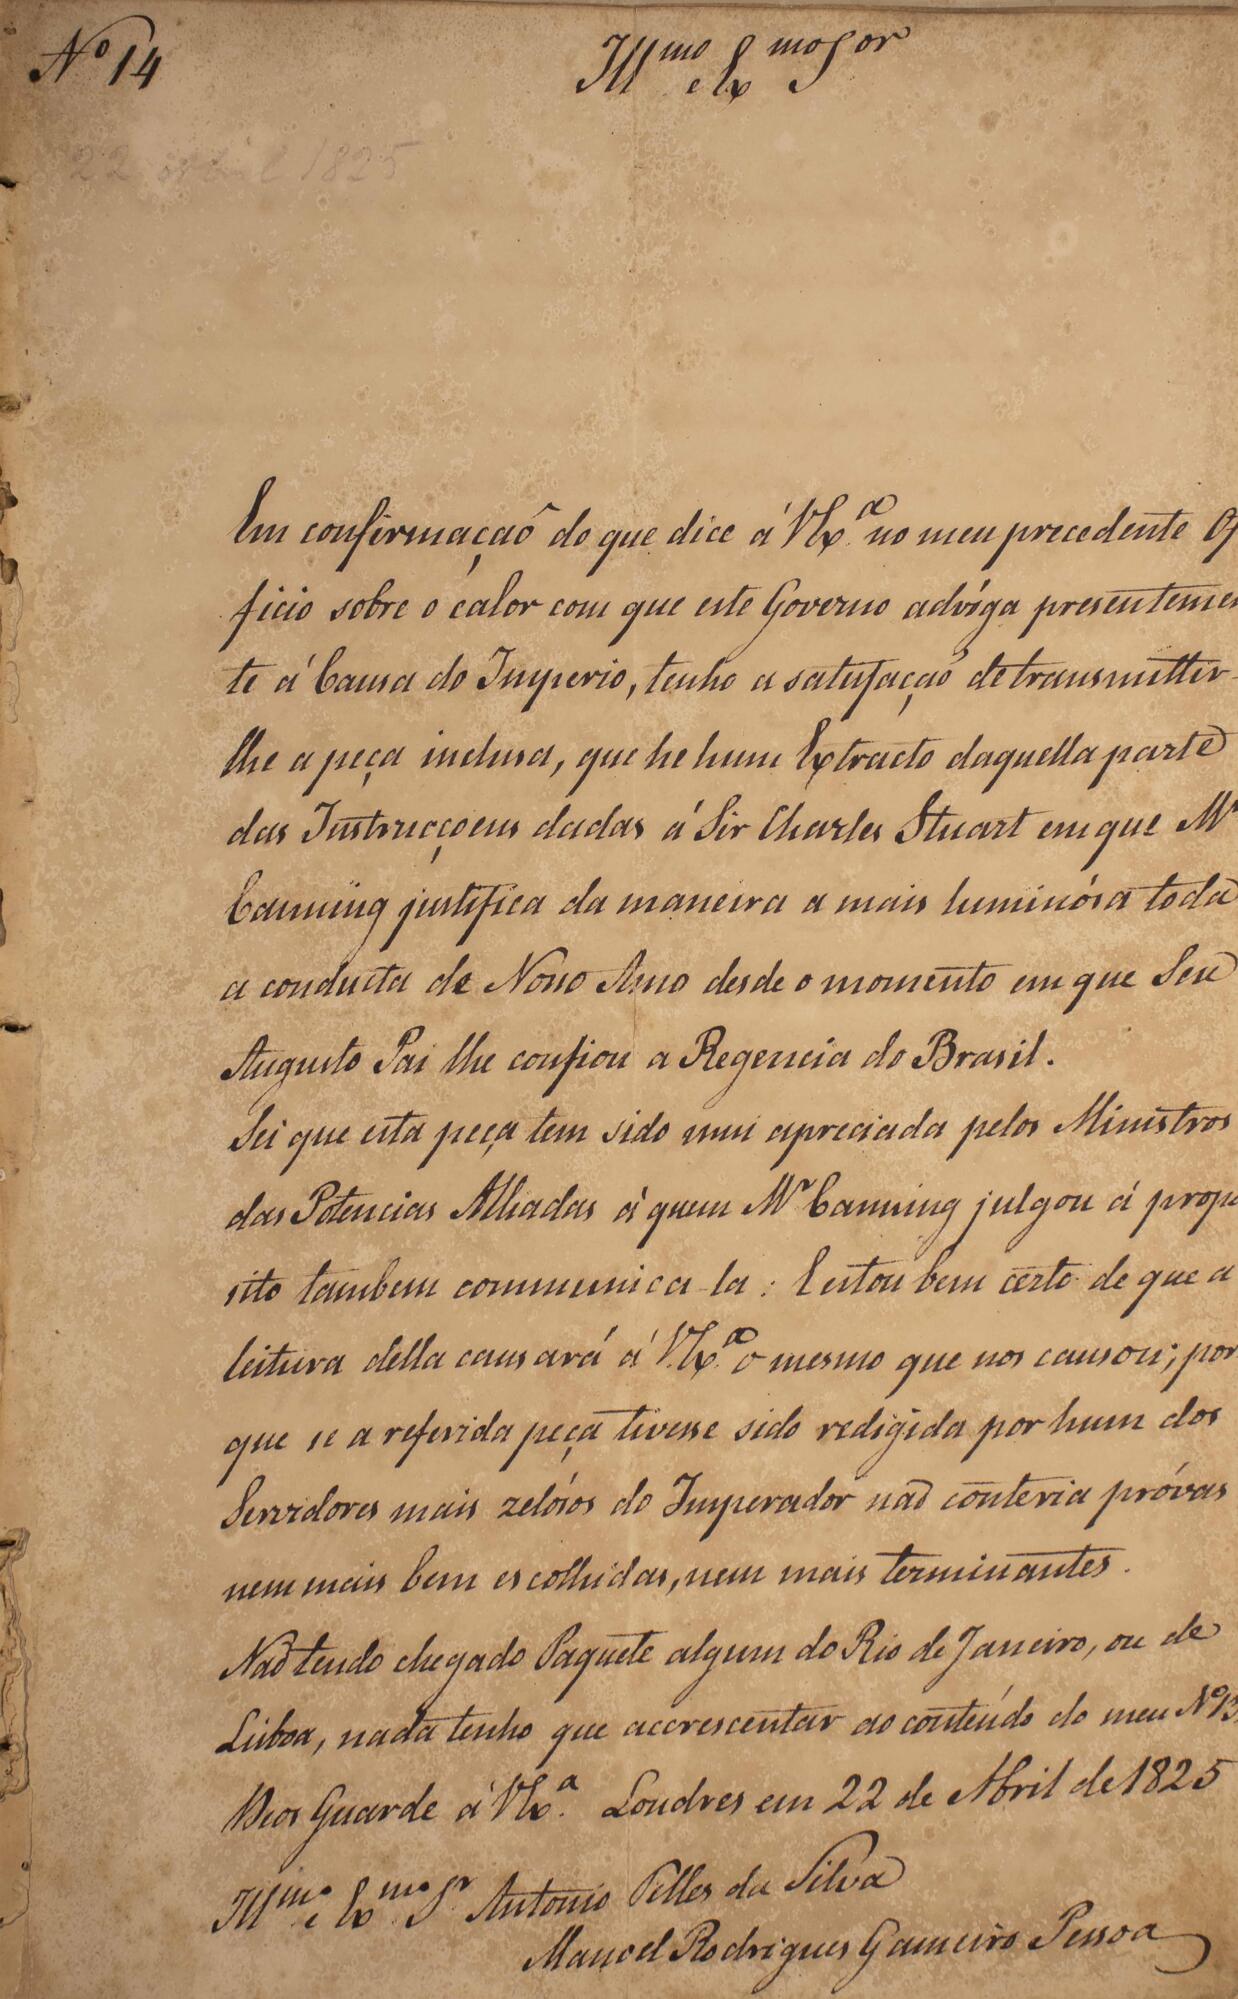 Nº 14
Illmo e Exmo Sor
22 abril 1825
Em confirmaçaõ do que dice á VExa. no meu precedente Of
ficio sobre o calor com que este Governo advóga presentemen
te á Causa do Imperio, tenho a satisfaçaõ de transmittir-
lhe a peça inclusa, que he hum Extracto daquella parte
das Instrucçoens dadas á Sir Charles Stuart em que Mr
Canning justifica da maneira a mais luminósa toda
a conducta de Nosso Amo desde o momento em que Seu
Augusto Pai lhe confiou a Regencia do Brasil.
Sei que esta peça tem sido mui apreciada pelos Ministros
das Potencias Alliadas á quem Mr Canning julgou á propo
sito tambem communica-la: Estou bem certo de que a
leitura della causará á V.Exa. o mesmo que nos causou; por
que se a referida peça tivesse sido redigida por hum dos
Servidores mais zelósos do Imperador naõ conteria próvas
nem mais bem escolhidas, nem mais terminantes.
Naõ tendo chegado Paquete algum do Rio de Janeiro, ou de
Lisboa, nada tenho que accrescentar ao conteúdo do meu Nº 13.
Deos Guarde á VExa. Londres em 22 de Abril de 1825
Illmo e Exmo Sr Antonio Telles da Silva
Manoel Rodrigues Gameiro Pessoa